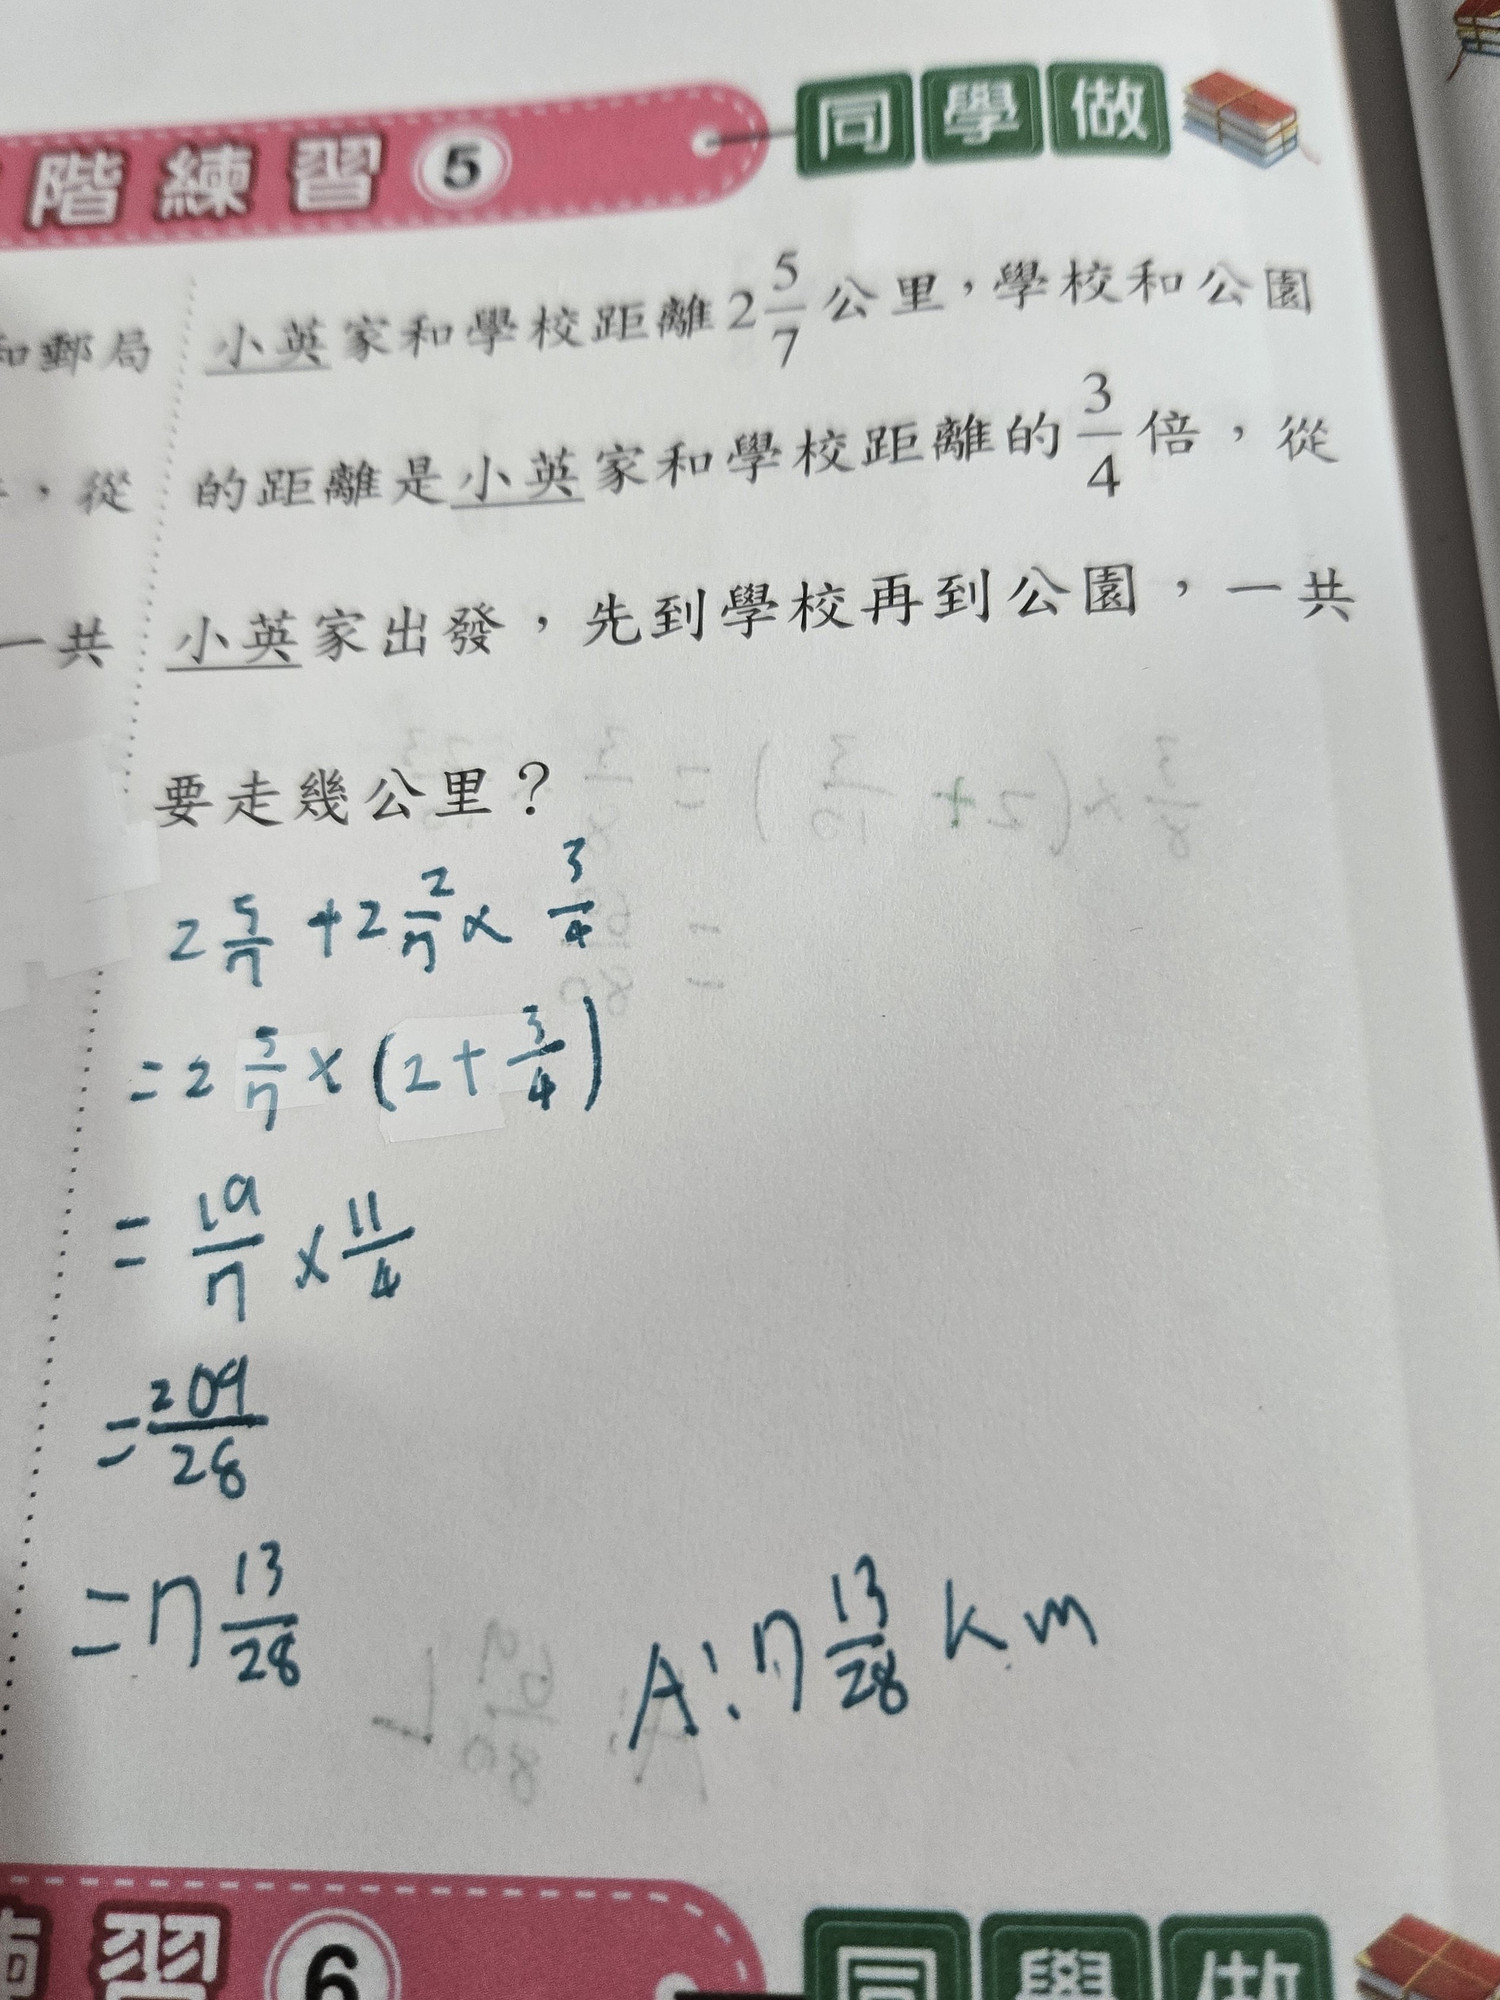 階練習 5 同學做
和郵局
，從
一共
小英家和學校距離2 5/7 公里，學校和公園
的距離是小英家和學校距離的 3/4 倍，從
小英家出發，先到學校再到公園，一共
要走幾公里？
2 5/7 + 2 2/7 × 3/4
= 2 5/7 × (2 + 3/4)
= 19/7 × 11/4
= 209/28
= 7 13/28
A: 7 13/28 km
習 6 同學做